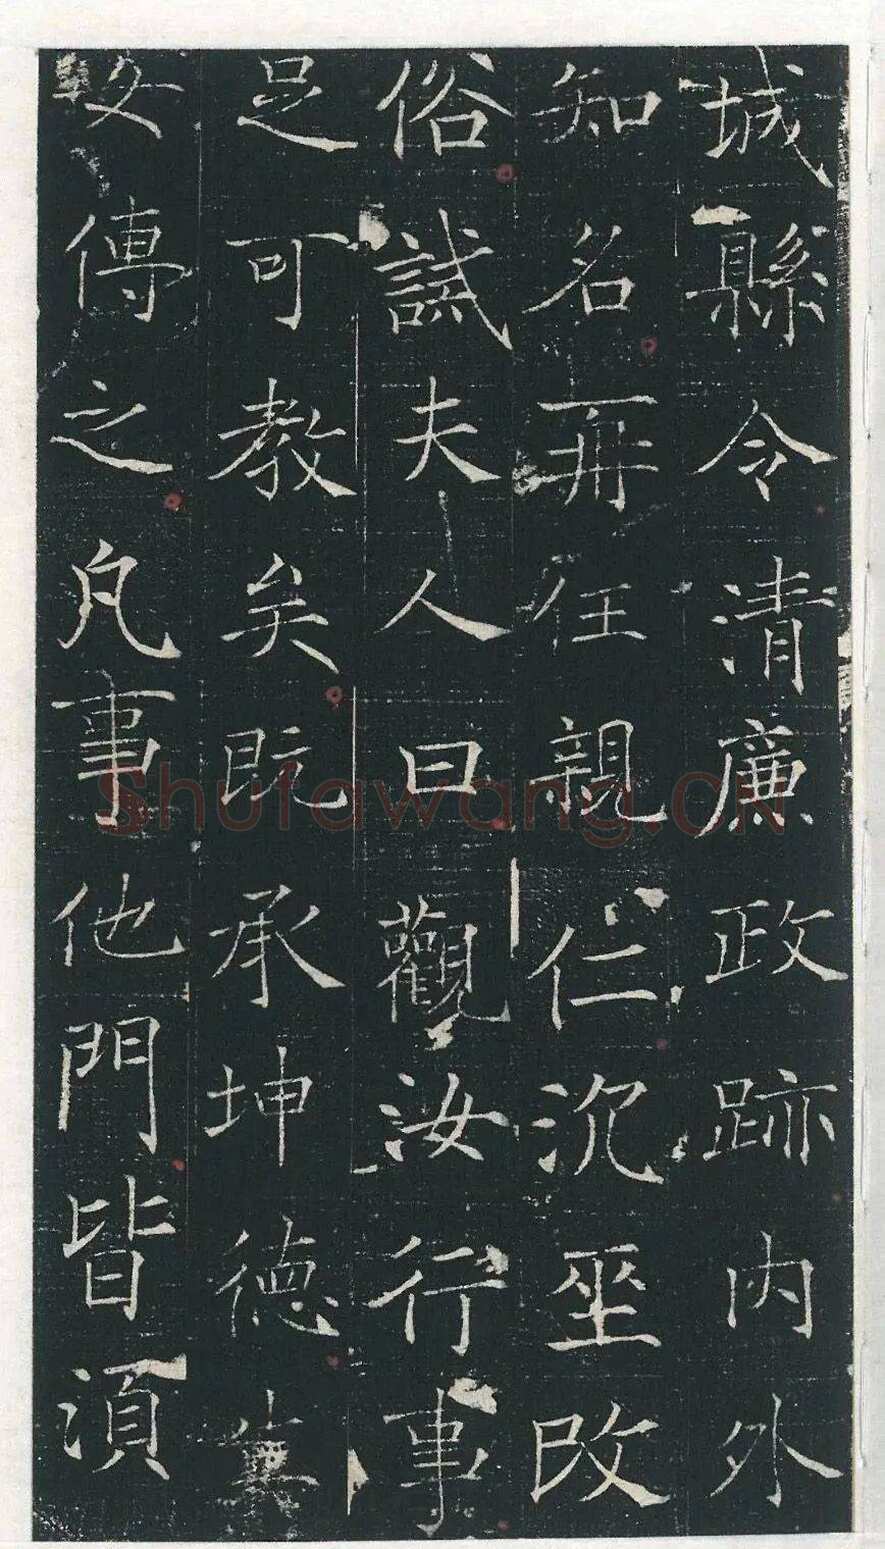 城縣令清廉政跡內外
知名再任親仁沉坐改
俗試夫人曰觀汝行事
足可教矣既承坤德
傳之凡事他門皆須
Shufawang.CN